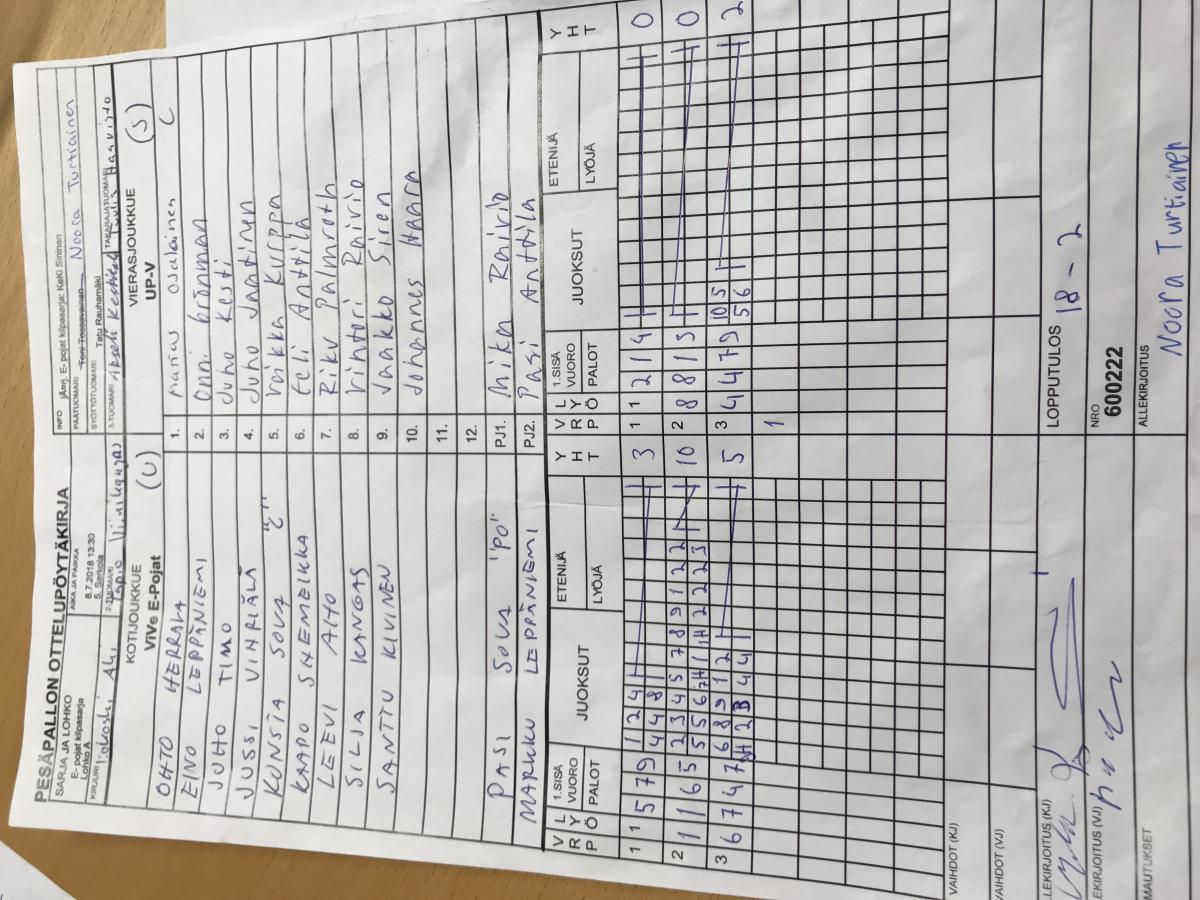 PESÄPALLON OTTELUPÖYTÄKIRJA
SARJA JA LOHKO
E- pojat kilpasarja
Lohko A
AIKA JA PAIKKA
8.7.2018 13:30
5. Seriola
INFO jÄrrj. E- pojat kilpasarja: KeKi Sininen
PÄÄTUOMARI Toni Tossavainen Noora Turtiainen
SYÖTTÖTUOMARI Tatu Rauhamäki
KIRJURI
2-TUOMARI
3-TUOMARI
TAKARAJATUOMARI
KOTIJOUKKUE (U)
ViVe E-Pojat
VIERASJOUKKUE (S)
UP-V
OHTO HERRALA 1. Matias Osalainen C
EINO LEPPÄNIEMI 2. Onni Brännman
JUHO TIMO 3. Juho Kesti
JUSSI VIHRIÄLÄ 4. Juho Jantinen
KUNSIA SOVA "C" 5. Veikka Kurppa
KAAPO SHEMEIKKA 6. Eeli Anttila
LEEVI AHO 7. Riku Palmroth
SILJA KANGAS 8. Vihtori Raivio
SANTTU KIVINEN 9. Jaakko Siren
10. Johannes Haara
11.
12.
PASI SOVA "PO" PJ1. Mika Raivio
MARKKU LEPPÄNIEMI PJ2. Pasi Anttila
V R P L Y Ö 1.SISÄ VUORO PALOT JUOKSUT ETENIJÄ LYÖJÄ Y H T V R P L Y Ö 1.SISÄ VUORO PALOT JUOKSUT ETENIJÄ LYÖJÄ Y H T
1 1 5 7 9 1 2 4 3 1 1 2 1 4 0
4 4 8
2 1 1 6 5 2 3 4 5 7 8 9 1 2 2 10 2 8 8 1 3 0
5 5 6 7H 1 1H 2 2 2 3
3 6 7 4 7 6 8 9 1 2 5 3 4 4 7 9 10 5 2
2 B 4 4 5 6
1
VAIHDOT (KJ)
VAIHDOT (VJ)
LLEKIRJOITUS (KJ)
LOPPUTULOS 18 - 2
EKIRJOITUS (VJ)
NRO
600222
MAUTUKSET
ALLEKIRJOITUS
Noora Turtiainen